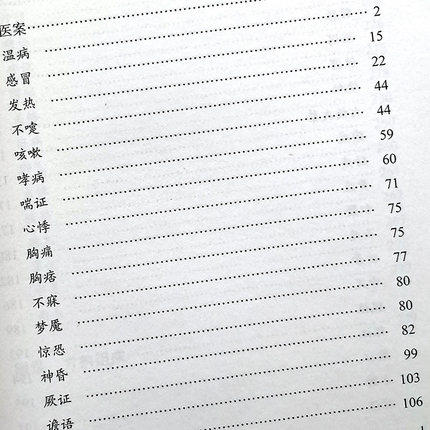 医案 ········ 2
温病 ········ 15
感冒 ········ 22
发热 ········ 44
不嚏 ········ 44
咳嗽 ········ 59
哮病 ········ 60
喘证 ········ 71
心悸 ········ 75
胸痛 ········ 75
胸痞 ········ 77
不寐 ········ 80
梦魇 ········ 80
惊恐 ········ 82
神昏 ········ 99
厥证 ········ 103
谵语 ········ 106